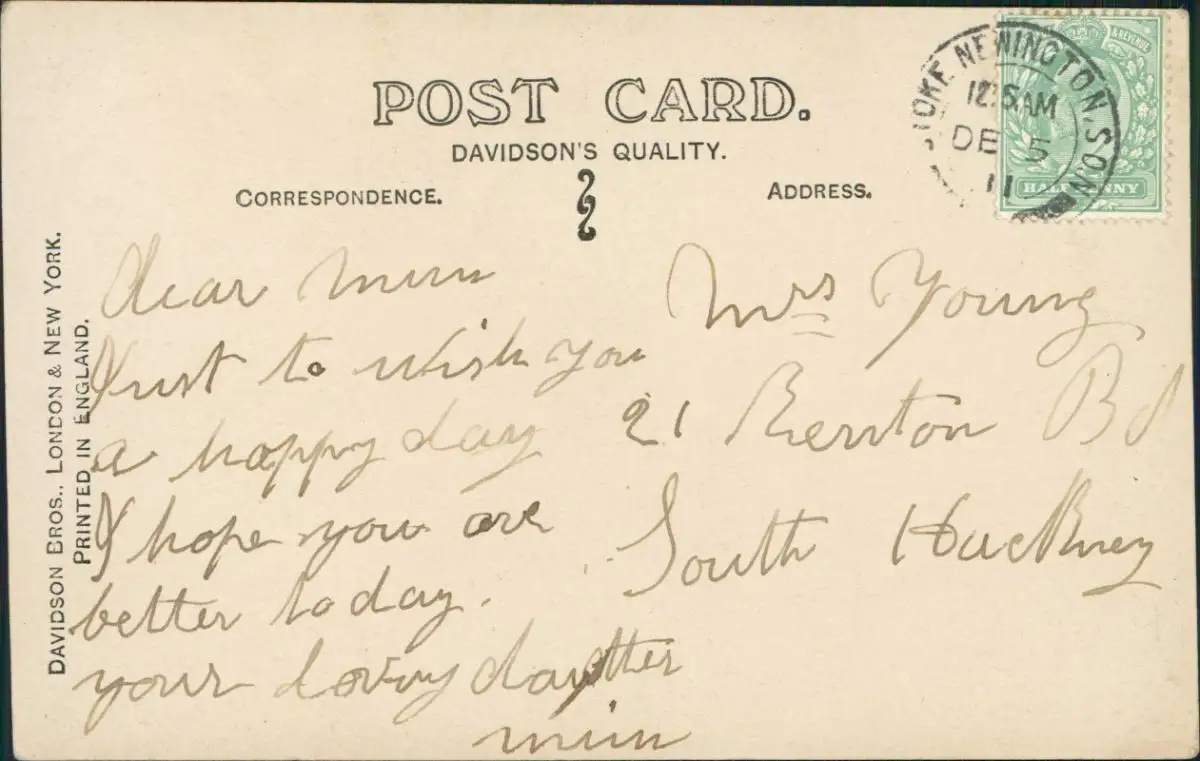 POST CARD.
DAVIDSON'S QUALITY.
CORRESPONDENCE.
ADDRESS.
STOKE NEWINGTON, S.O N
12.15AM
DE 5
11
& REVENUE
HALFPENNY
DAVIDSON BROS., LONDON & NEW YORK.
PRINTED IN ENGLAND.
dear mum
Just to wish you
a happy day
I hope you are
better today.
your loving daughter
min
Mrs Young
21 Rd
South Hackney